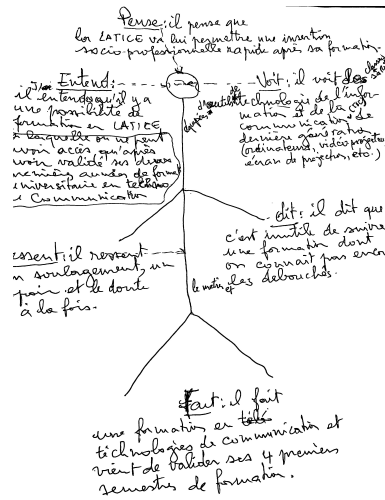 Pense: il pense que
la LATICE va lui permettre une insertion
socio-professionnelle rapide après sa formation.
Entend:
il entend qu'il y a
une possibilité de
formation en LATICE
à laquelle on ne peut
avoir accès qu'après
avoir validé ses deux
premières années de format
universitaire en techno
Communication
Voit: il voit des
technologie de l'infor-
mation et de la
communication de
dernière génération
(ordinateurs, vidéo projecteur
écran de projection, etc.)
dit: il dit que
c'est inutile de suivre
une formation dont
on connait pas encore
les débouchés.
essent: il ressent
un soulagement, un
espoir et le doute
à la fois.
Fait: il fait
une formation en télé
technologies de communication et
vient de valider ses 4 premiers
semestres de formation.